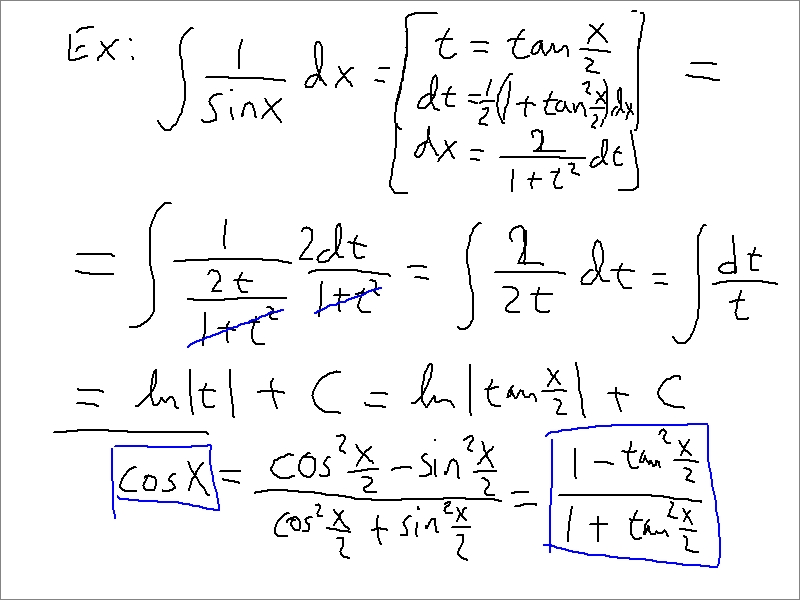 Ex: ∫ 1/sinx dx = [ t = tan x/2
dt = 1/2(1 + tan² x/2)dx
dx = 2/(1+t²) dt ] =
= ∫ 1/(2t/(1+t²)) 2dt/(1+t²) = ∫ 2/2t dt = ∫ dt/t
= ln|t| + C = ln|tan x/2| + C
cosx = (cos² x/2 − sin² x/2)/(cos² x/2 + sin² x/2) = (1 − tan² x/2)/(1 + tan² x/2)